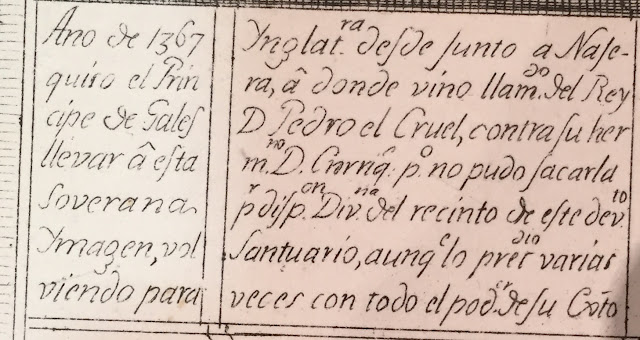 Año de 1367
quiso el Prin
cipe de Gales
llevar â esta
soverana
Ymagen, vol
viendo para
Ynglat.ra desde junto a Nage-
ra, â donde vino llam.do del Rey
D Pedro el Cruel, contra su her
m.no D. Enrriq.e p.o no pudo sacarla
p.r disp.on Div.na del recinto de este dev.to
Santuario, aunq.e lo pret.dio varias
veces con todo el pod.er de su Exto